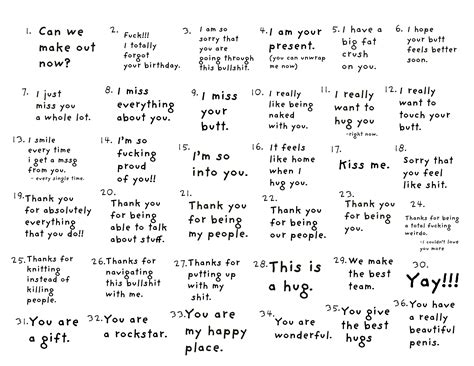 1. Can we
make out
now?
2. Fuck!!!
I totally
forgot
your birthday.
3. I am so
sorry that
you are
going through
this bullshit.
4. I am your
present.
(you can unwrap
me now)
5. I have a
big fat
crush
on you.
6. I hope
your butt
feels better
soon.
7. I just
miss you
a whole lot.
8. I miss
everything
about you.
9. I miss
your
butt.
10. I really
like being
naked
with you.
11. I really
want to
hug you
-right now.
12. I really
want to
touch your
butt.
13. I smile
every time
i get a mssg
from you.
- every single time.
14. I'm so
fucking
proud
of you!!
15. I'm so
into you.
16. It feels
like home
when I
hug you.
17.
Kiss me.
18.
Sorry that
you feel
like shit.
19. Thank you
for absolutely
everything
that you do!!
20.
Thank you
for being
able to talk
about stuff.
21.
Thank you
for being
my people.
22.
Thank you
for being
our people.
23.
Thank you
for being
you.
24.
Thanks for being
a total fucking
weirdo.
-i couldn't love
you more
25. Thanks for
knitting
instead of
killing
people.
26. Thanks for
navigating
this bullshit
with me.
27. Thanks for
putting up
with my
shit.
28. This is
a hug.
29. We make
the best
team.
30.
Yay!!!
31. You are
a gift.
32. You are
a rockstar.
33. You are
my happy
place.
34. You are
wonderful.
35. You give
the best
hugs
36. You have
a really
beautiful
penis.